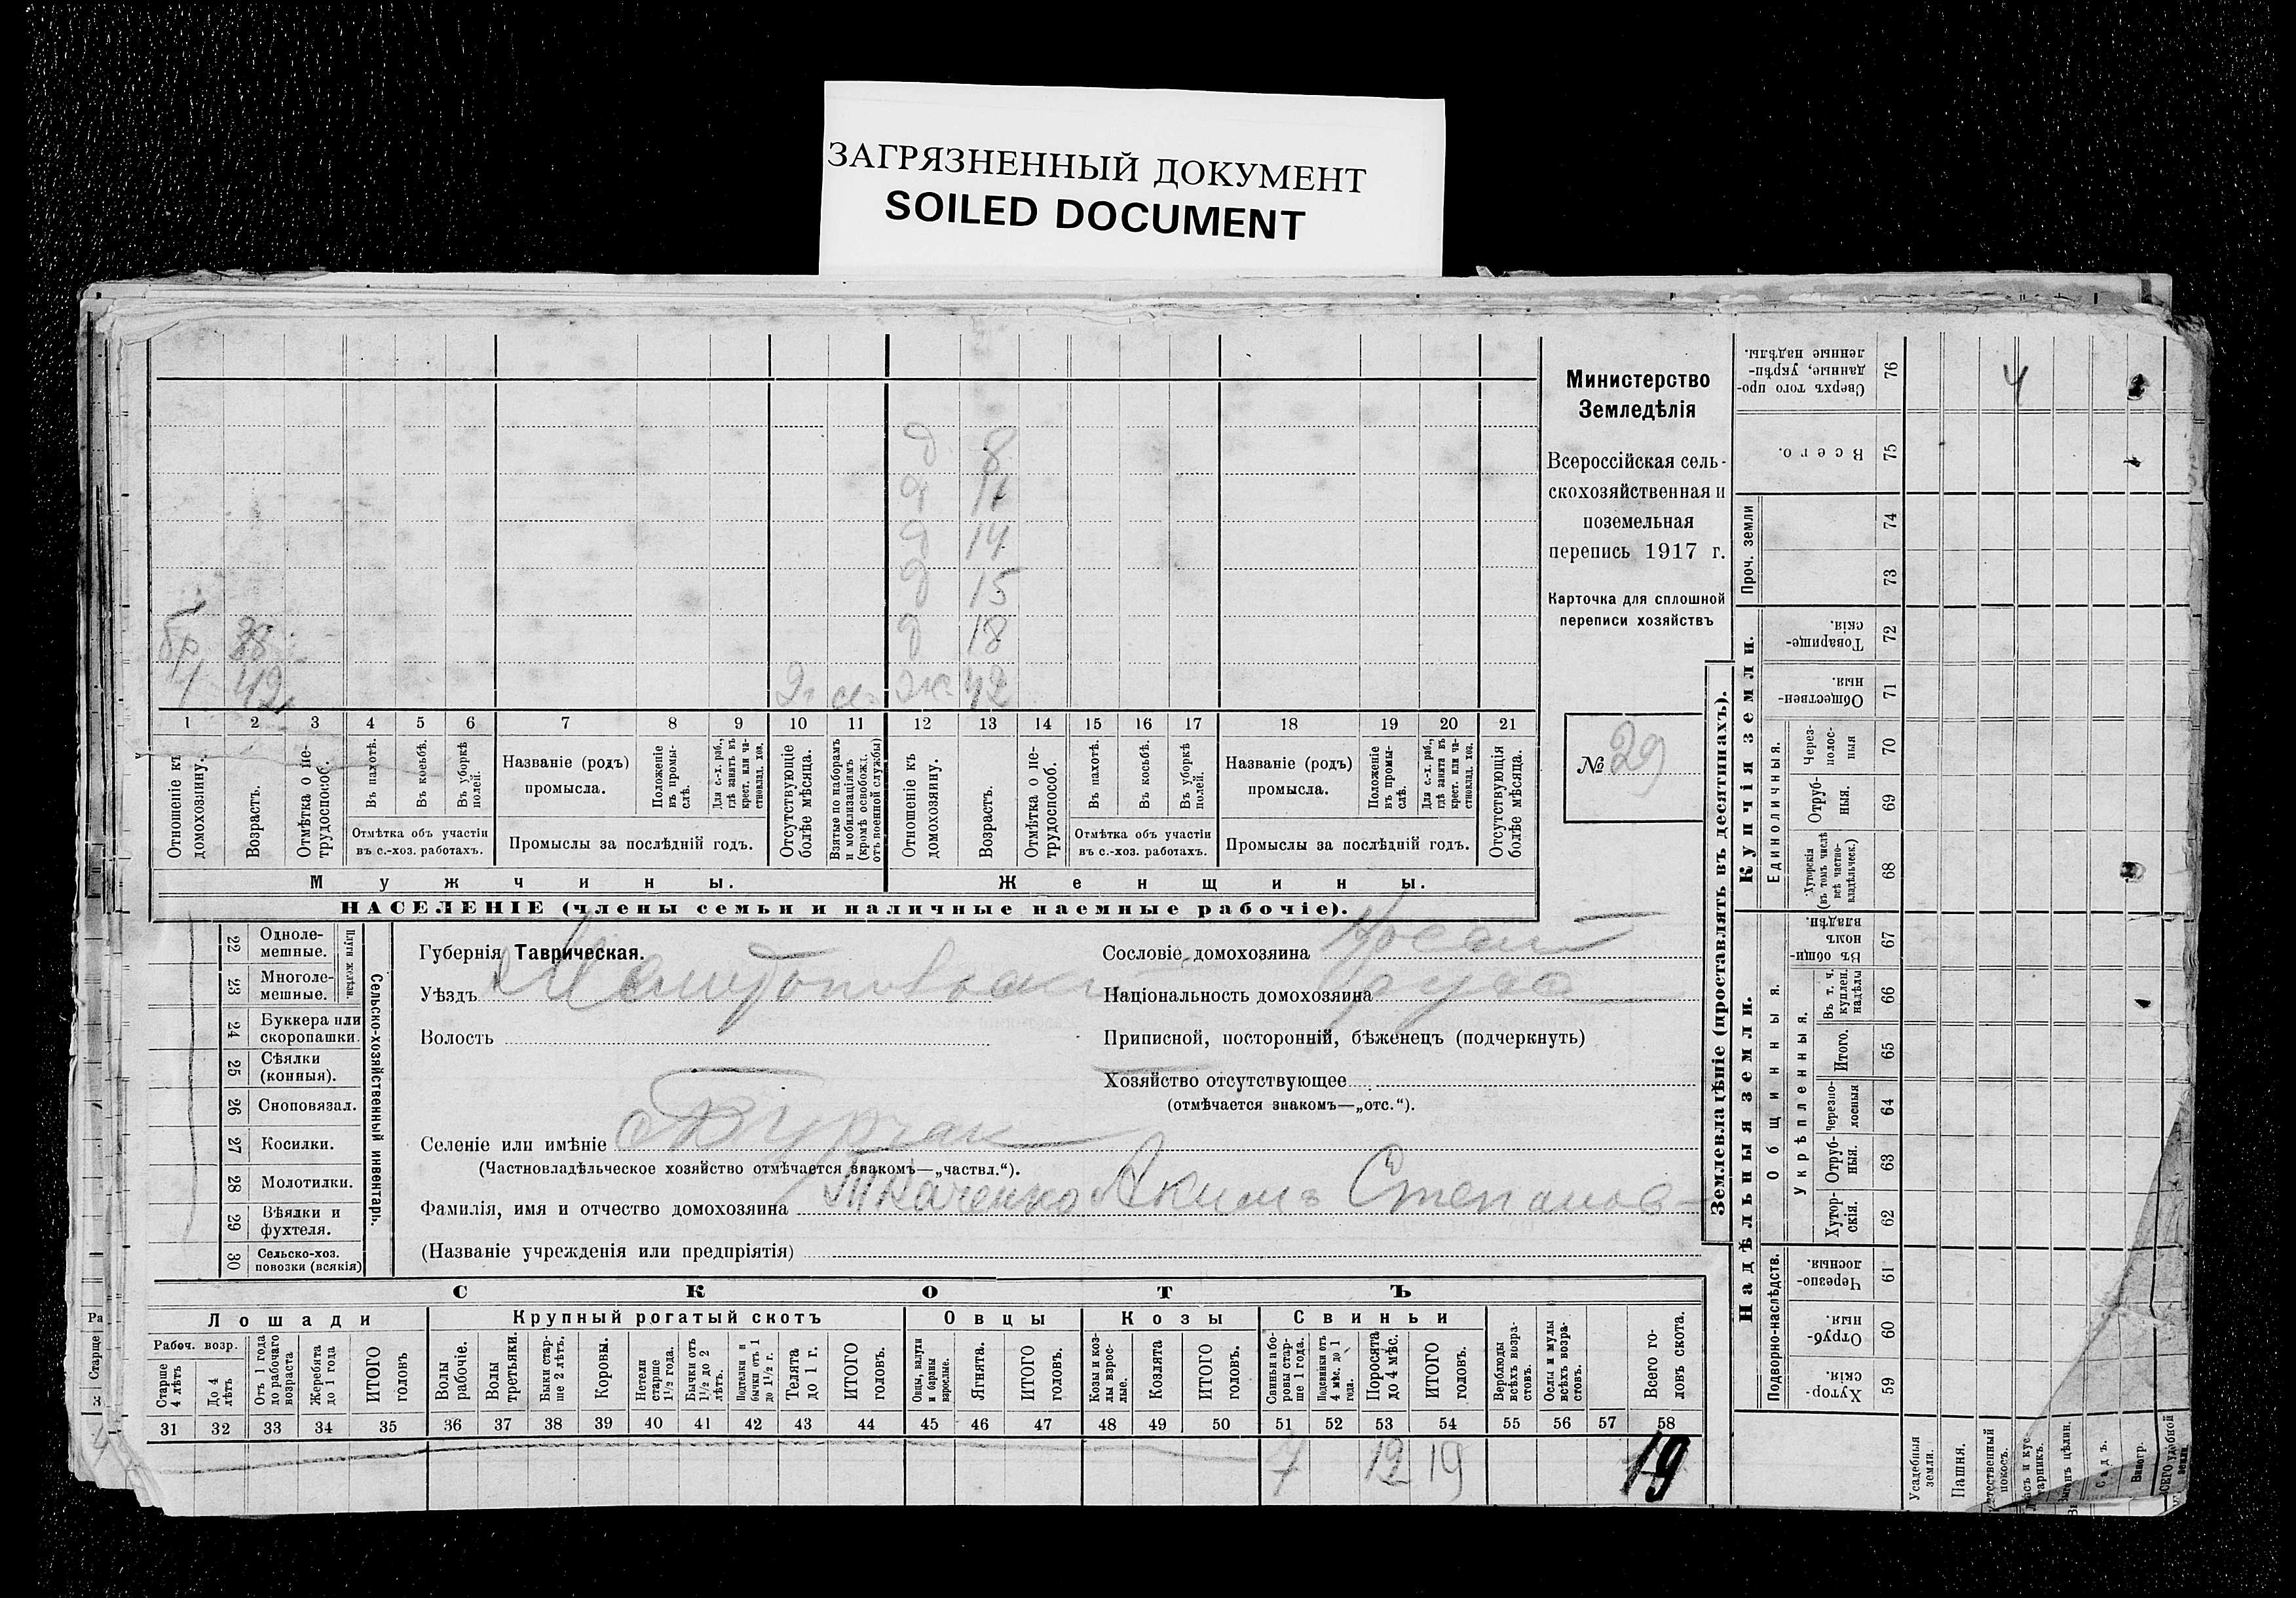 ЗАГРЯЗНЕННЫЙ ДОКУМЕНТ
SOILED DOCUMENT
Министерство
Земледѣлія
Всероссійская сель-
скохозяйственная и
поземельная
перепись 1917 г.
Карточка для сплошной
переписи хозяйствъ
№ 29
д 8
д 11
д 14
д 15
д 18
бр 38
1 42 ж 42
1 2 3 4 5 6 7 8 9 10 11 12 13 14 15 16 17 18 19 20 21
Отношеніе къ домохозяину.
Возрастъ.
Отмѣтка о не-трудоспособ.
Въ пахотѣ.
Въ косьбѣ.
Въ уборкѣ полей.
Отмѣтка объ участіи
въ с.-хоз. работахъ.
Названіе (родъ)
промысла.
Положеніе въ промы-слѣ.
Для с.-х. раб., гдѣ занятъ въ крест. или ча-стновлад. хоз.
Промыслы за послѣдній годъ.
Отсутствующіе болѣе мѣсяца.
Взятые по наборамъ и мобилизаціямъ (кромѣ освобожд. отъ военной службы)
Отношеніе къ домохозяину.
Возрастъ.
Отмѣтка о не-трудоспособ.
Въ пахотѣ.
Въ косьбѣ.
Въ уборкѣ полей.
Отмѣтка объ участіи
въ с.-хоз. работахъ.
Названіе (родъ)
промысла.
Положеніе въ промы-слѣ.
Для с.-х. раб., гдѣ занята въ крест. или ча-стновлад. хоз.
Промыслы за послѣдній годъ.
Отсутствующія болѣе мѣсяца.
Мужчины.
Женщины.
НАСЕЛЕНІЕ (члены семьи и наличные наемные рабочіе).
22 Одноле-мешные.
23 Многоле-мешные.
Плуги желѣзн.
24 Буккера или скоропашки.
25 Сѣялки (конныя).
26 Сноповязал.
27 Косилки.
28 Молотилки.
29 Вѣялки и фухтеля.
30 Сельско-хоз. повозки (всякія)
Сельско-хозяйственный инвентарь.
Губернія Таврическая.
Уѣздъ
Волость
Селеніе или имѣніе
(Частновладѣльческое хозяйство отмѣчается знакомъ—„частвл.“).
Фамилія, имя и отчество домохозяина Ткаченко Акимъ Степанов
(Названіе учрежденія или предпріятія)
Сословіе домохозяина
Національность домохозяина
Приписной, посторонній, бѣженецъ (подчеркнуть)
Хозяйство отсутствующее
(отмѣчается знакомъ—„отс.“).
СКОТЪ
Лошади
Крупный рогатый скотъ
Овцы
Козы
Свиньи
Рабоч. возр.
Старше 4 лѣтъ
До 4 лѣтъ
Отъ 1 года до рабочаго возраста
Жеребята до 1 года
ИТОГО головъ
Волы рабочіе.
Волы третьяки.
Быки стар-ше 2 лѣтъ.
Коровы.
Нетели старше 1½ года.
Бычки отъ 1½ до 2 лѣтъ.
Подтелки и бычки отъ 1 до 1½ г.
Телята до 1 г.
ИТОГО головъ.
Овцы, валухи и бараны взрослые.
Ягнята.
ИТОГО головъ.
Козы и коз-лы взрос-лые.
Козлята
ИТОГО головъ.
Свиньи и бо-ровы стар-ше 1 года.
Подсвинки отъ 4 мѣс. до 1 года.
Поросята до 4 мѣс.
ИТОГО головъ.
Верблюды всѣхъ возра-стовъ.
Ослы и мулы всѣхъ возра-стовъ.
Всего го-ловъ скота.
31 32 33 34 35 36 37 38 39 40 41 42 43 44 45 46 47 48 49 50 51 52 53 54 55 56 57 58
7 12 19 19
Землевладѣніе (проставлять въ десятинахъ).
Купчія земли.
Надѣльныя земли.
76 Сверхъ того про-данные, укрѣп-ленные надѣлы.
4
75 Всего.
Проч. земли
74
73
72 Товарище-скія.
71 Обществен-ныя.
Единоличныя.
70 Через-полос-ныя
69 Отруб-ныя.
68 Хуторскія (въ томъ числѣ всѣ частно-владѣльческ.)
67 Въ общин-номъ владѣн.
66 Въ т. ч. куплен. надѣлы
65 Итого.
64 Черезпо-лосныя
63 Отруб-ныя.
62 Хутор-скія.
Общинныя.
Укрѣпленныя.
Подворно-наслѣдств.
61 Черезпо-лосныя.
60 Отруб-ныя.
59 Хутор-скія.
Усадебныя земли.
Пашня.
Садъ.
Виногр.